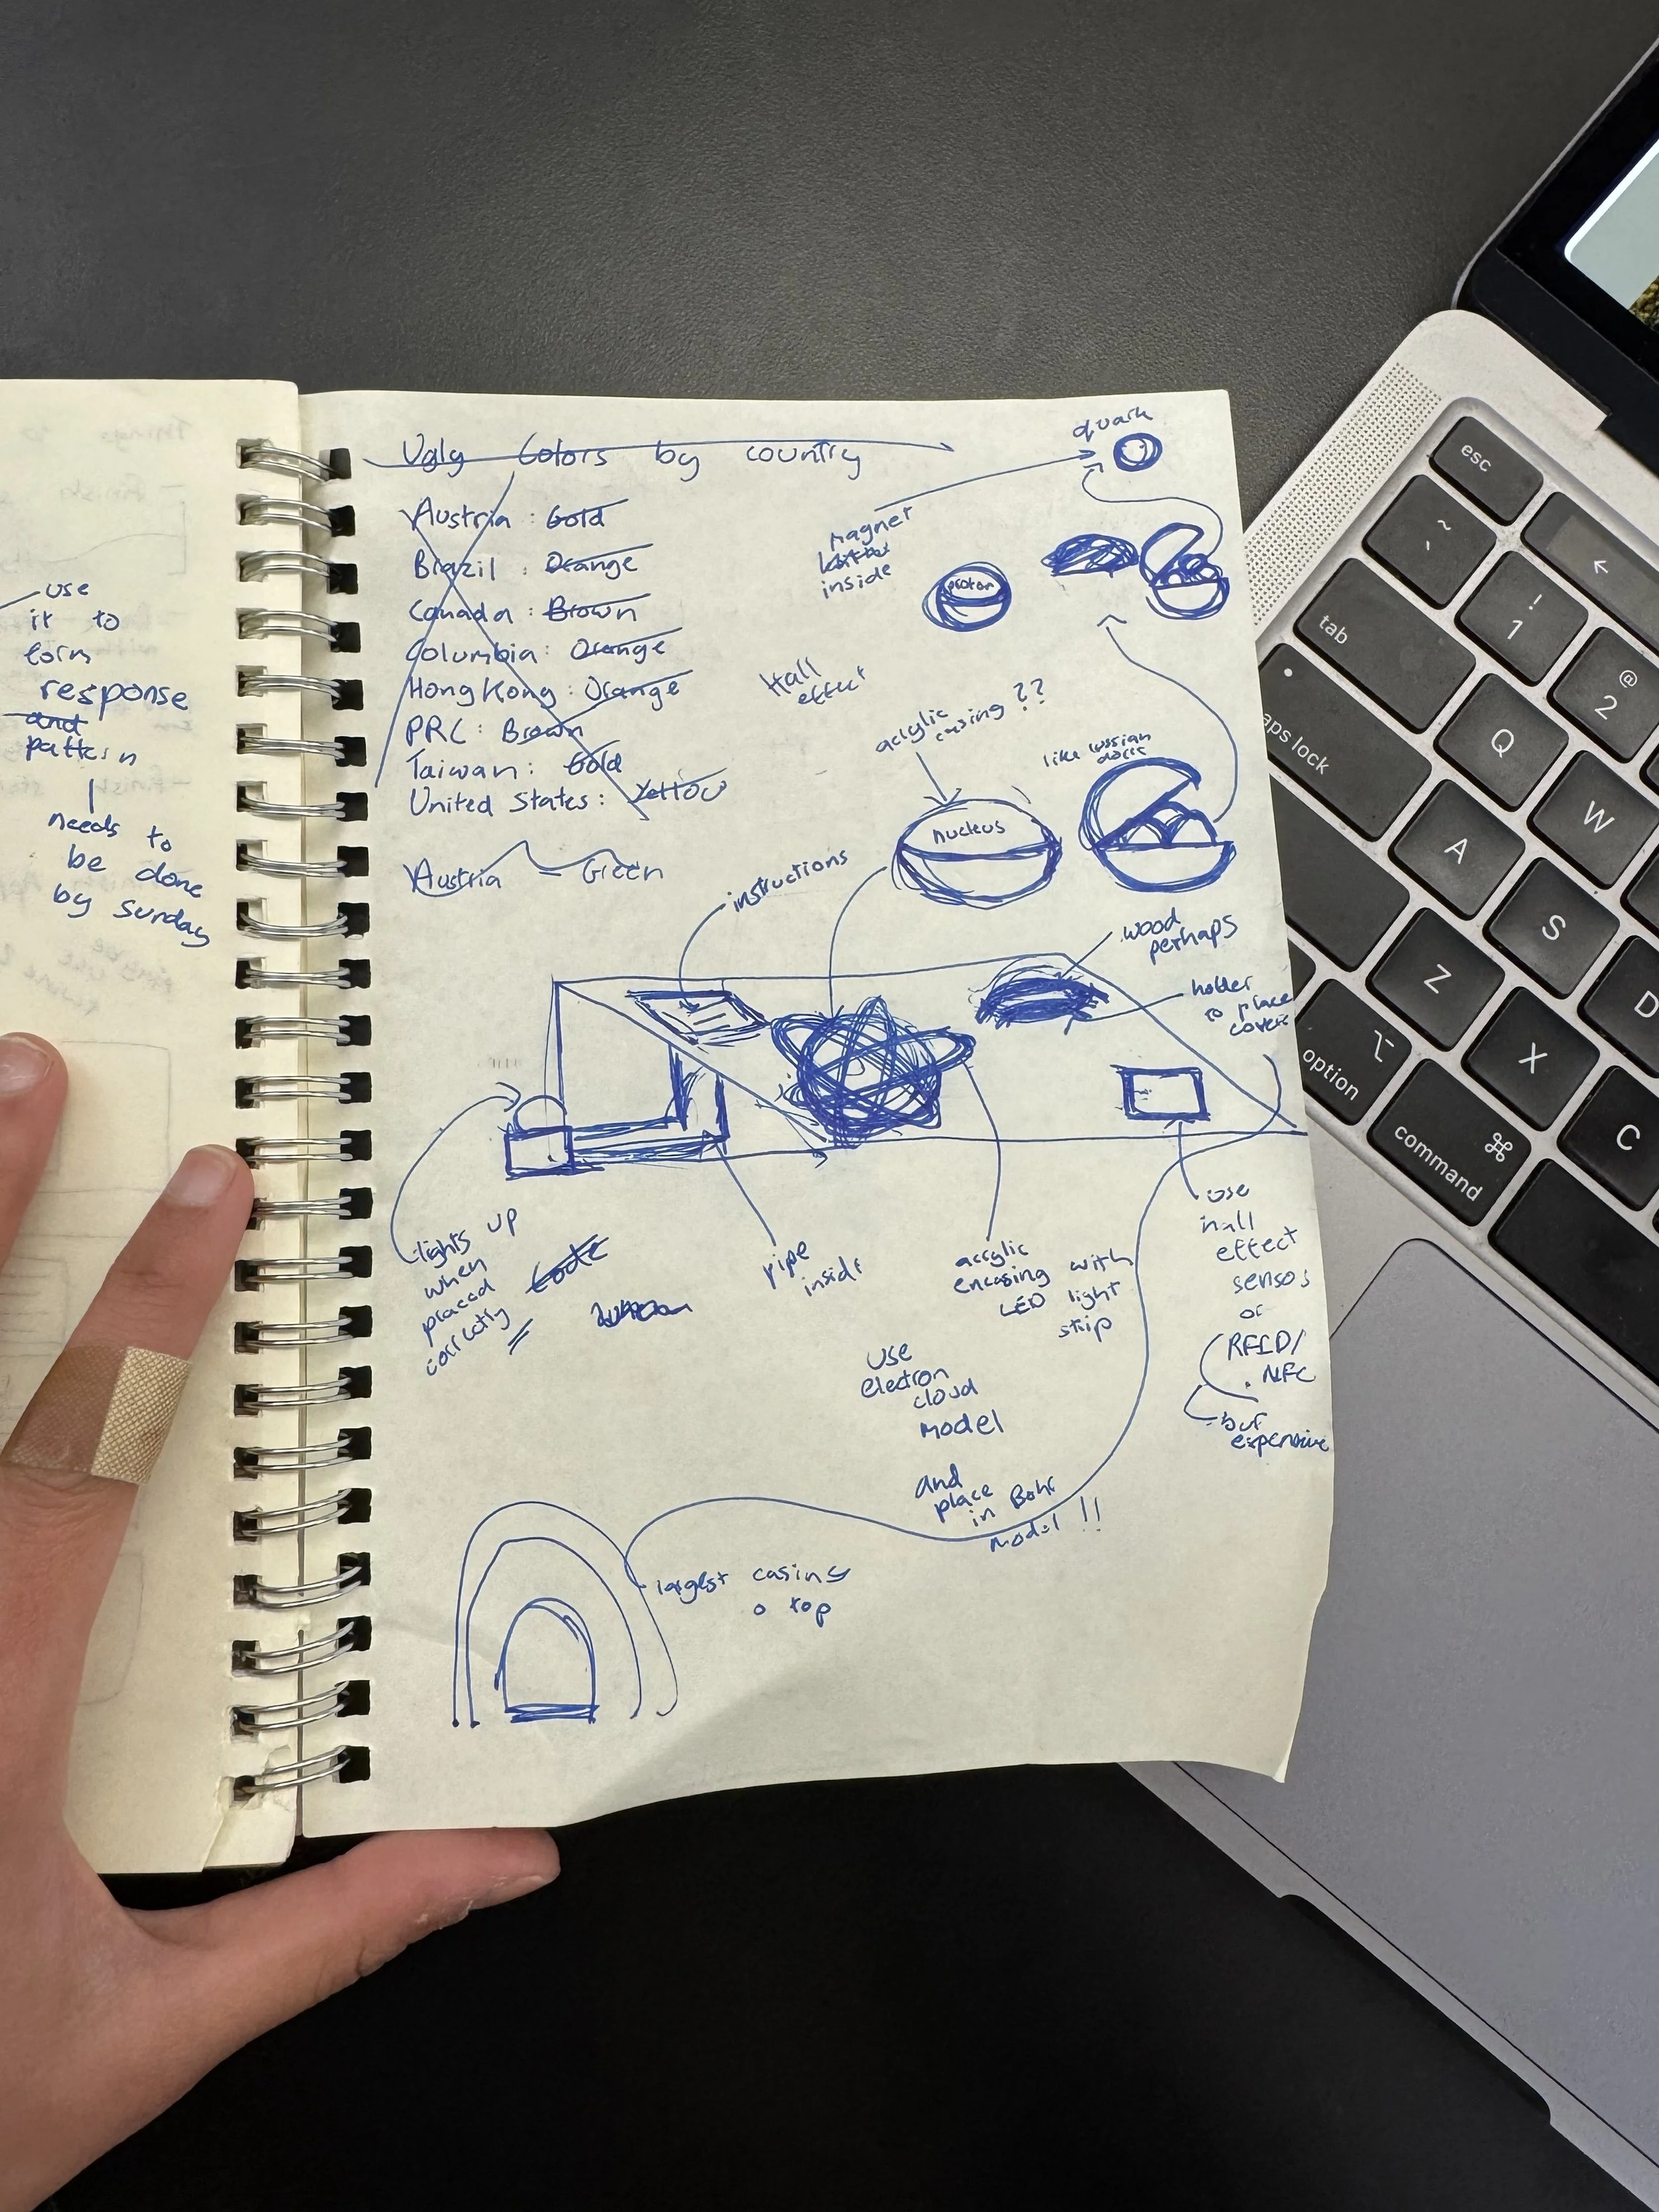 use
it to
form
response
and
pattern
needs to
be done
by Sunday
Ugly Colors by country
Austria : Gold
Brazil : Orange
Canada : Brown
Columbia : Orange
Hong Kong : Orange
PRC : Brown
Taiwan : Gold
United States : Yellow
Austria = Green
quark
magnet
inside
proton
Hall
effect
acrylic
casing ??
like russian
dolls
nucleus
instructions
wood
perhaps
holder
to place
covers
lights up
when
placed
correctly
Code
pipe
inside
acrylic
encasing with
LED light
strip
use
hall
effect
sensos
or
RFID/
NFC
but
expensive
use
electron
cloud
model
and
place
in Bohr
Model !!
largest casing
o top
esc
~
`
!
1
@
2
tab
Q
W
caps lock
A
S
D
Z
X
C
option
⌥
command
⌘